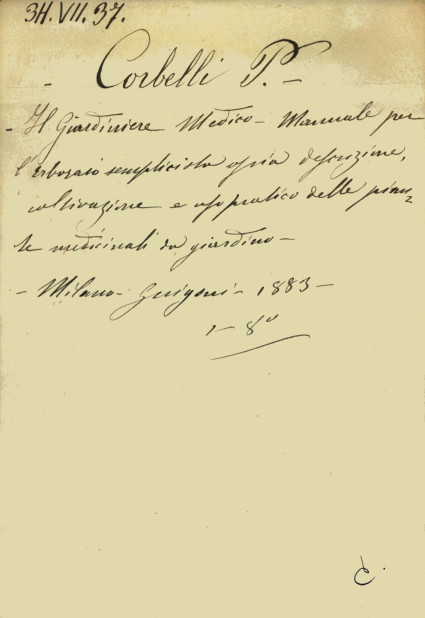 3H.VII.37.
- Corbelli P. -
- Il Giardiniere Medico - Manuale per
l'Erborajo semplicista ossia descrizione,
coltivazione e uso pratico delle pian=
te medicinali da giardino -
- Milano - Guigoni - 1883 -
1 - 8º
C.